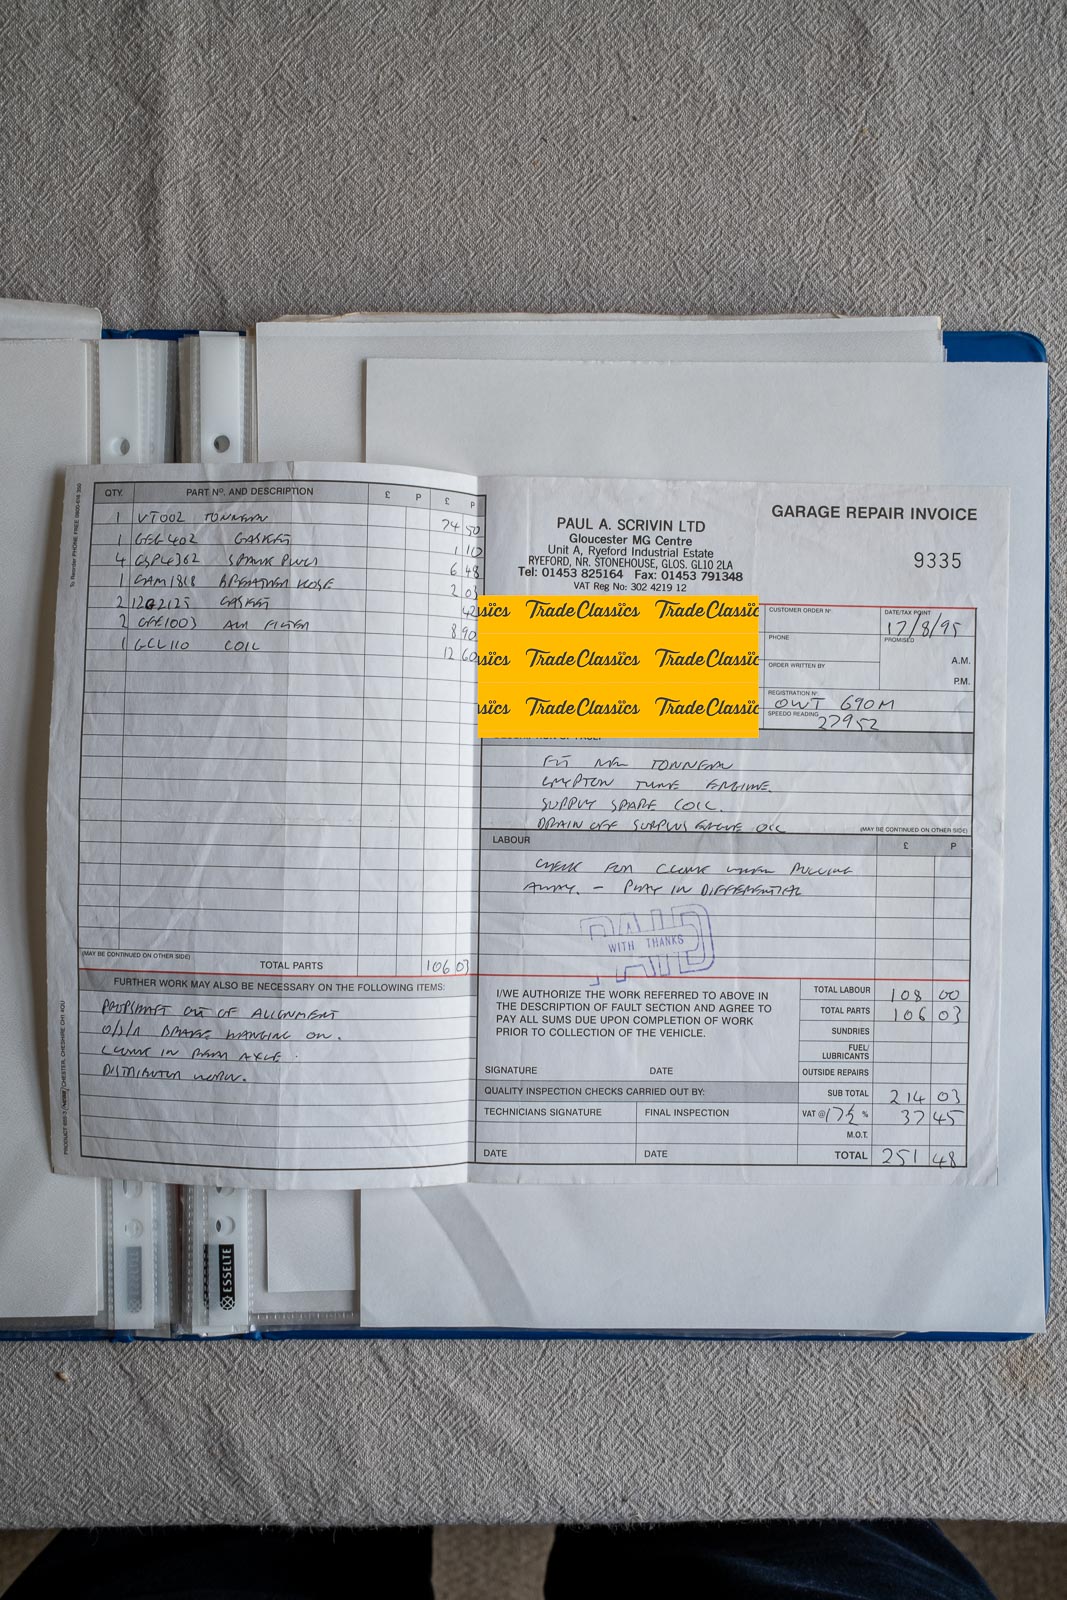 To Reorder PHONE FREE 0800-616 350
QTY. PART Nº. AND DESCRIPTION £ P £ P
1 VT002 TONNEAU 74 50
1 GEG402 GASKET 1 10
4 GSP4362 SPARK PLUGS 6 48
1 GAM1818 BREATHER HOSE 2 03
2 12G2125 GASKET 42
2 GFE1003 AIR FILTER 8 90
1 GCL110 COIL 12 60
(MAY BE CONTINUED ON OTHER SIDE)
TOTAL PARTS 106 03
FURTHER WORK MAY ALSO BE NECESSARY ON THE FOLLOWING ITEMS:
PROPSHAFT OUT OF ALIGNMENT
O/S/R BRAKE HANGING ON.
CLUNK IN REAR AXLE.
DISTRIBUTOR WORN.
CHESTER, CHESHIRE CH1 4QU
ESSELTE
ESSELTE
GARAGE REPAIR INVOICE
PAUL A. SCRIVIN LTD
Gloucester MG Centre
Unit A, Ryeford Industrial Estate
RYEFORD, NR. STONEHOUSE, GLOS. GL10 2LA
Tel: 01453 825164 Fax: 01453 791348
VAT Reg No: 302 4219 12
9335
ssics TradeClassics TradeClassic
ssics TradeClassics TradeClassic
ssics TradeClassics TradeClassic
CUSTOMER ORDER Nº
DATE/TAX POINT
17/8/95
PHONE
PROMISED
A.M.
ORDER WRITTEN BY
P.M.
REGISTRATION Nº.
OWT 690M
SPEEDO READING
27952
FIT NEW TONNEAU
CRYPTON TUNE ENGINE.
SUPPLY SPARE COIL.
DRAIN OFF SURPLUS ENGINE OIL
(MAY BE CONTINUED ON OTHER SIDE)
LABOUR £ P
CHECK FOR CLUNK WHEN PULLING
AWAY. - PLAY IN DIFFERENTIAL
PAID
WITH THANKS
I/WE AUTHORIZE THE WORK REFERRED TO ABOVE IN
THE DESCRIPTION OF FAULT SECTION AND AGREE TO
PAY ALL SUMS DUE UPON COMPLETION OF WORK
PRIOR TO COLLECTION OF THE VEHICLE.
SIGNATURE DATE
QUALITY INSPECTION CHECKS CARRIED OUT BY:
TECHNICIANS SIGNATURE FINAL INSPECTION
DATE DATE
TOTAL LABOUR 108 00
TOTAL PARTS 106 03
SUNDRIES
FUEL/
LUBRICANTS
OUTSIDE REPAIRS
SUB TOTAL 214 03
VAT @ 17½ % 37 45
M.O.T.
TOTAL 251 48